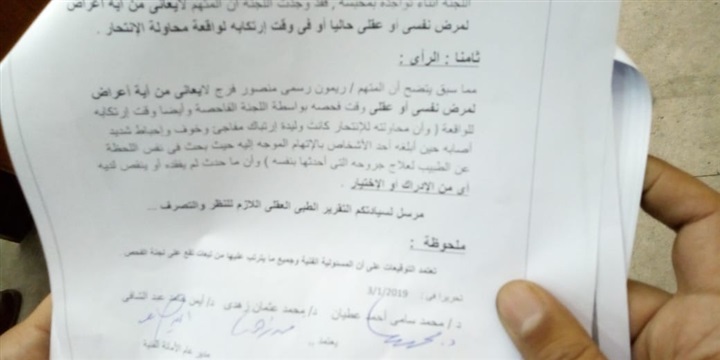 اللجنة أثناء تواجده بمحبسه , فقد وجدت اللجنة أن المتهم لايعاني من أية أعراض
لمرض نفسى أو عقلى حاليا أو فى وقت إرتكابه لواقعة محاولة الإنتحار .
ثامنا : الرأى :
مما سبق يتضح أن المتهم / ريمون رسمى منصور فرج لايعانى من أية أعراض
لمرض نفسى أو عقلى وقت فحصه بواسطة اللجنة الفاحصة وأيضا وقت إرتكابه
للواقعة ( وأن محاولته للإنتحار كانت وليدة إرتباك مفاجئ وخوف وإحباط شديد
أصابه حين أبلغه أحد الأشخاص بالإتهام الموجه إليه حيث بحث فى نفس اللحظة
عن الطبيب لعلاج جروحه التى أحدثها بنفسه ) وأن ما حدث لم يفقده أو ينقص لديه
أى من الإدراك أو الإختيار .
مرسل لسيادتكم التقرير الطبى العقلى اللازم للنظر والتصرف ...
ملحوظة :
تعتمد التوقيعات على أن المسئولية الفنية وجميع ما يترتب عليها من تبعات تقع على لجنة الفحص .
تحريرا فى : 3/1/2019
د / محمد سامى أحمد عطيان د/ محمد عثمان د/ أيمن عبد الشافى
يعتمد ..
مدير عام الأمانة الفنية